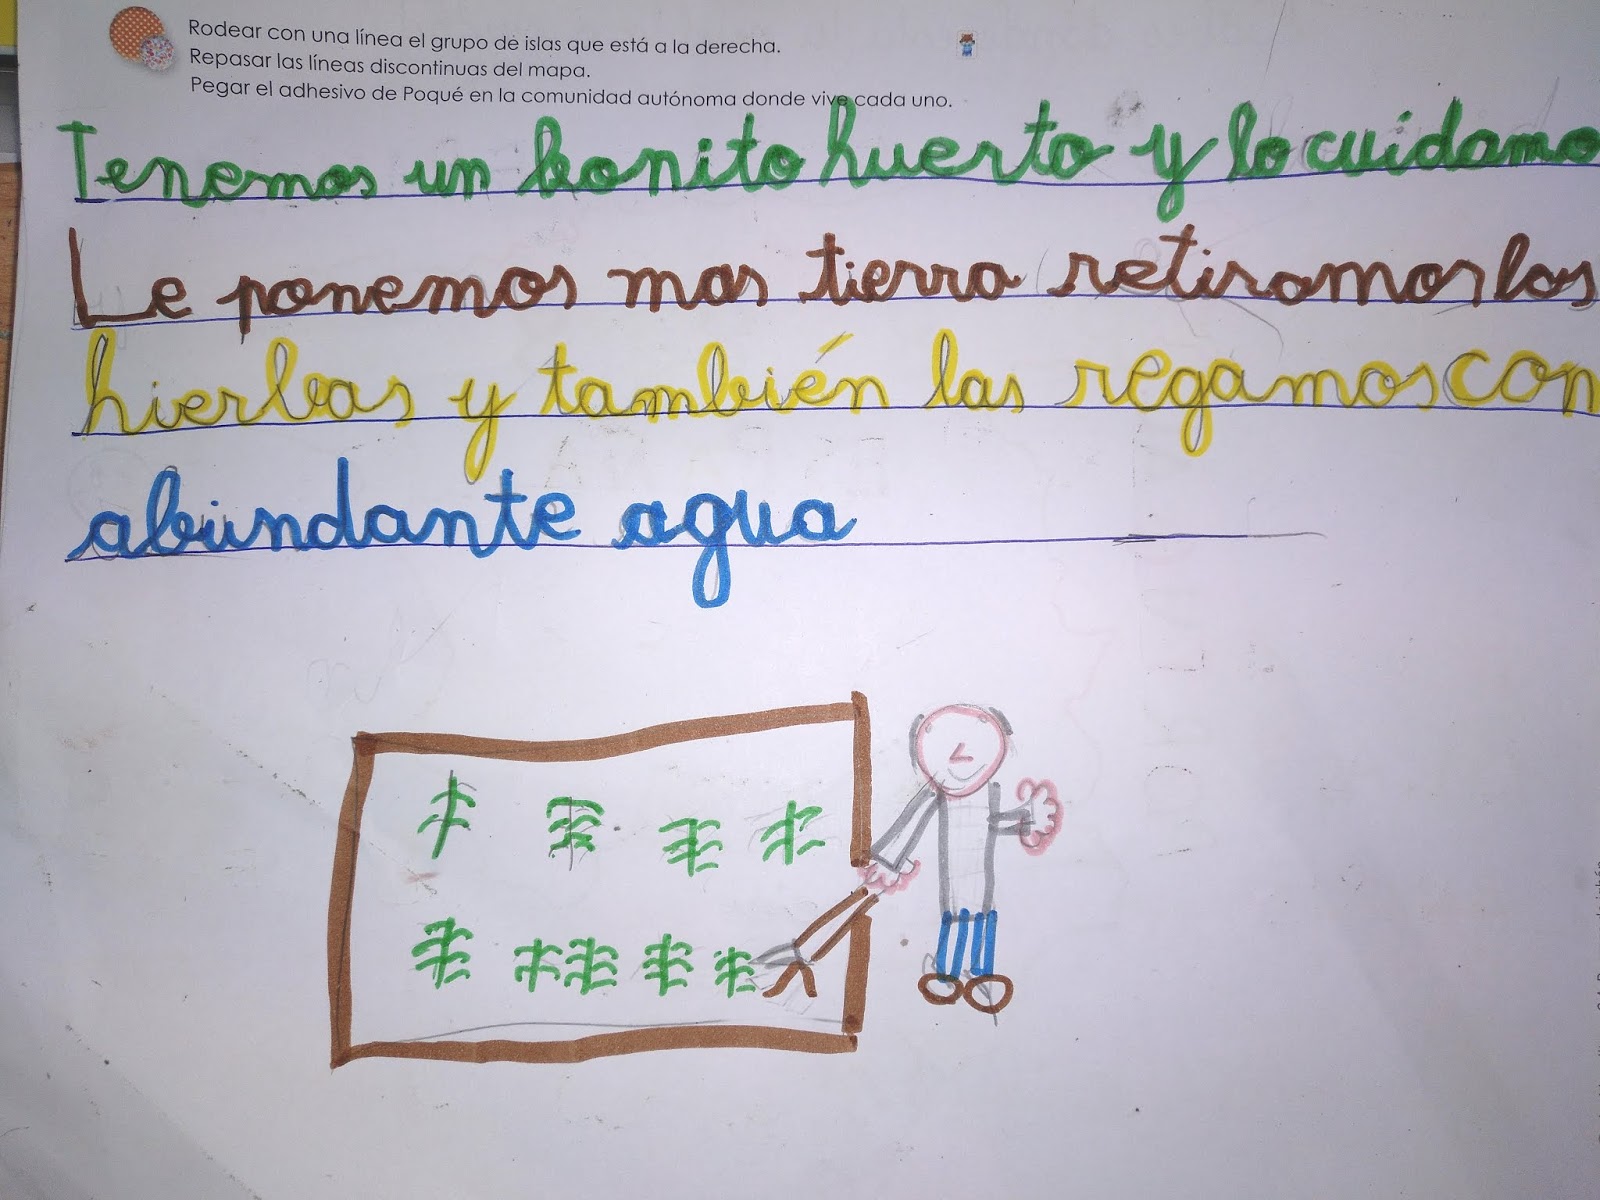 Rodear con una línea el grupo de islas que está a la derecha.
Repasar las líneas discontinuas del mapa.
Pegar el adhesivo de Poqué en la comunidad autónoma donde vive cada uno.
Tenemos un bonito huerto y lo cuidamo
Le ponemos mas tierra retiramos las
hierbas y también las regamos con
abundante agua